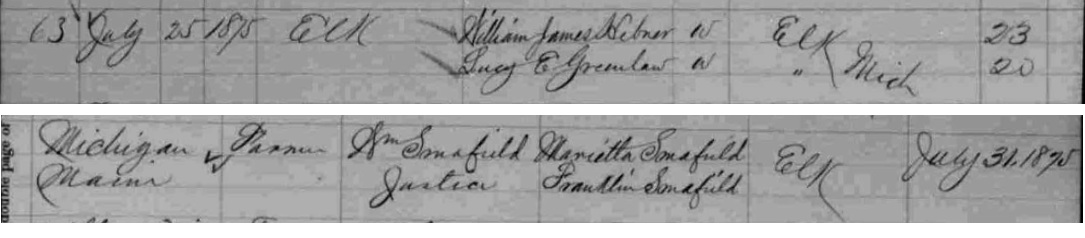 63 July 25 1875 Elk William James Hebner W Elk 23
Lucy E Greenlaw W " Mich 20
Michigan Farmer Wm Smafield Marietta Smafield Elk July 31. 1875
Maine Justice Franklin Smafield
double page of